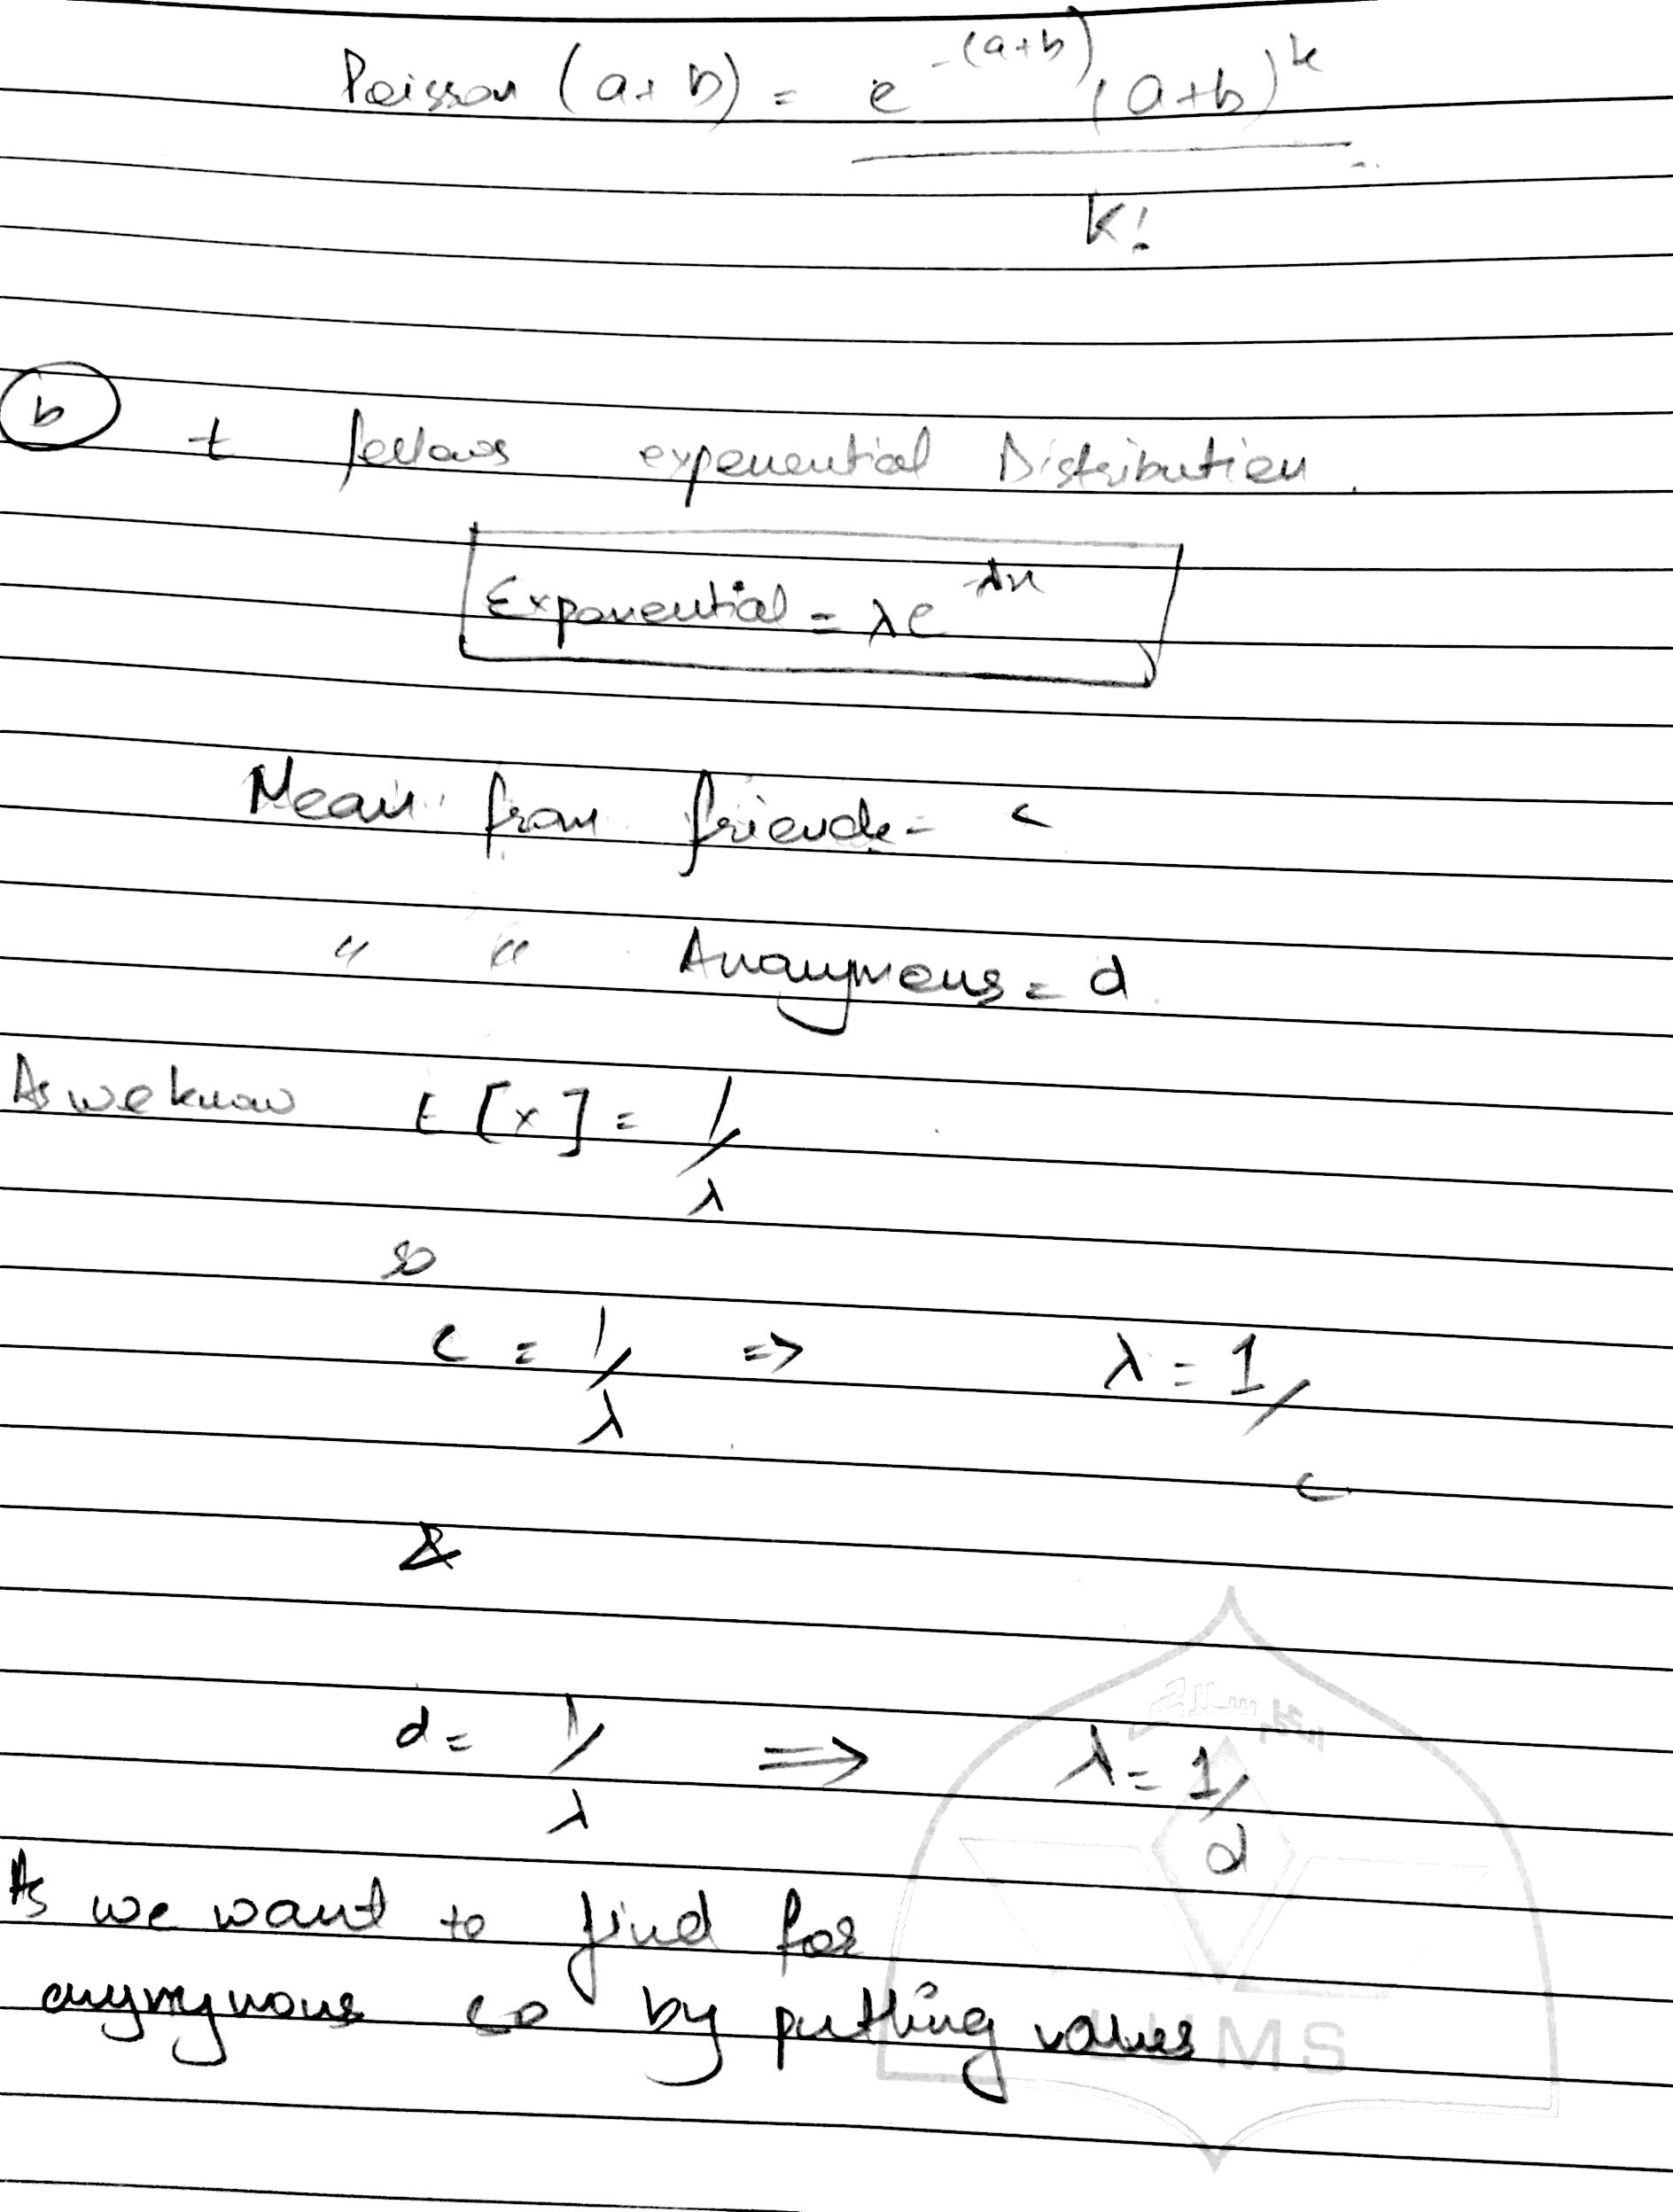 Poisson (a+b) = e^-(a+b) (a+b)^k
K!
b t follows exponential Distribution.
Exponential = λe^-λx
Mean from friends = c
" " Anonymous = d
As we know E[x] = 1/λ
so
c = 1/λ => λ = 1/c
&
d = 1/λ => λ = 1/d
As we want to find for
anymynous so by putting values
LUMS